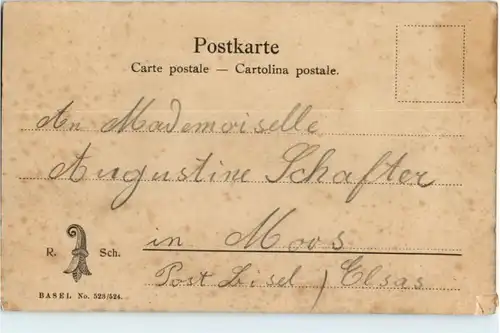 Postkarte
Carte postale — Cartolina postale.
An Mademoiselle
Augustine Schafter
in Moos
R. Sch.
Post Lisel / Elsas
BASEL No. 523/524.